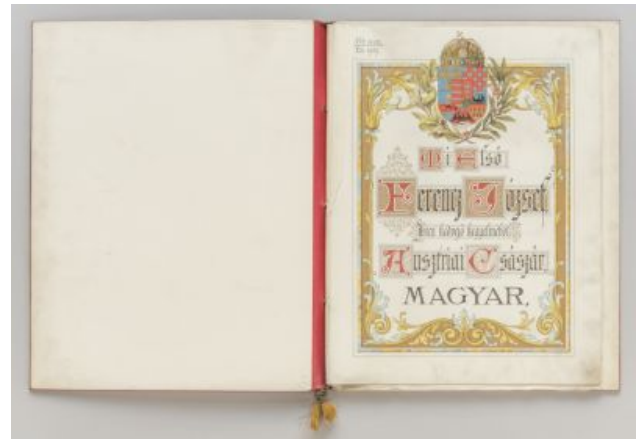 Mi Első
Ferencz József
Isten kedvező kegyelméből
Ausztriai Császár,
MAGYAR,